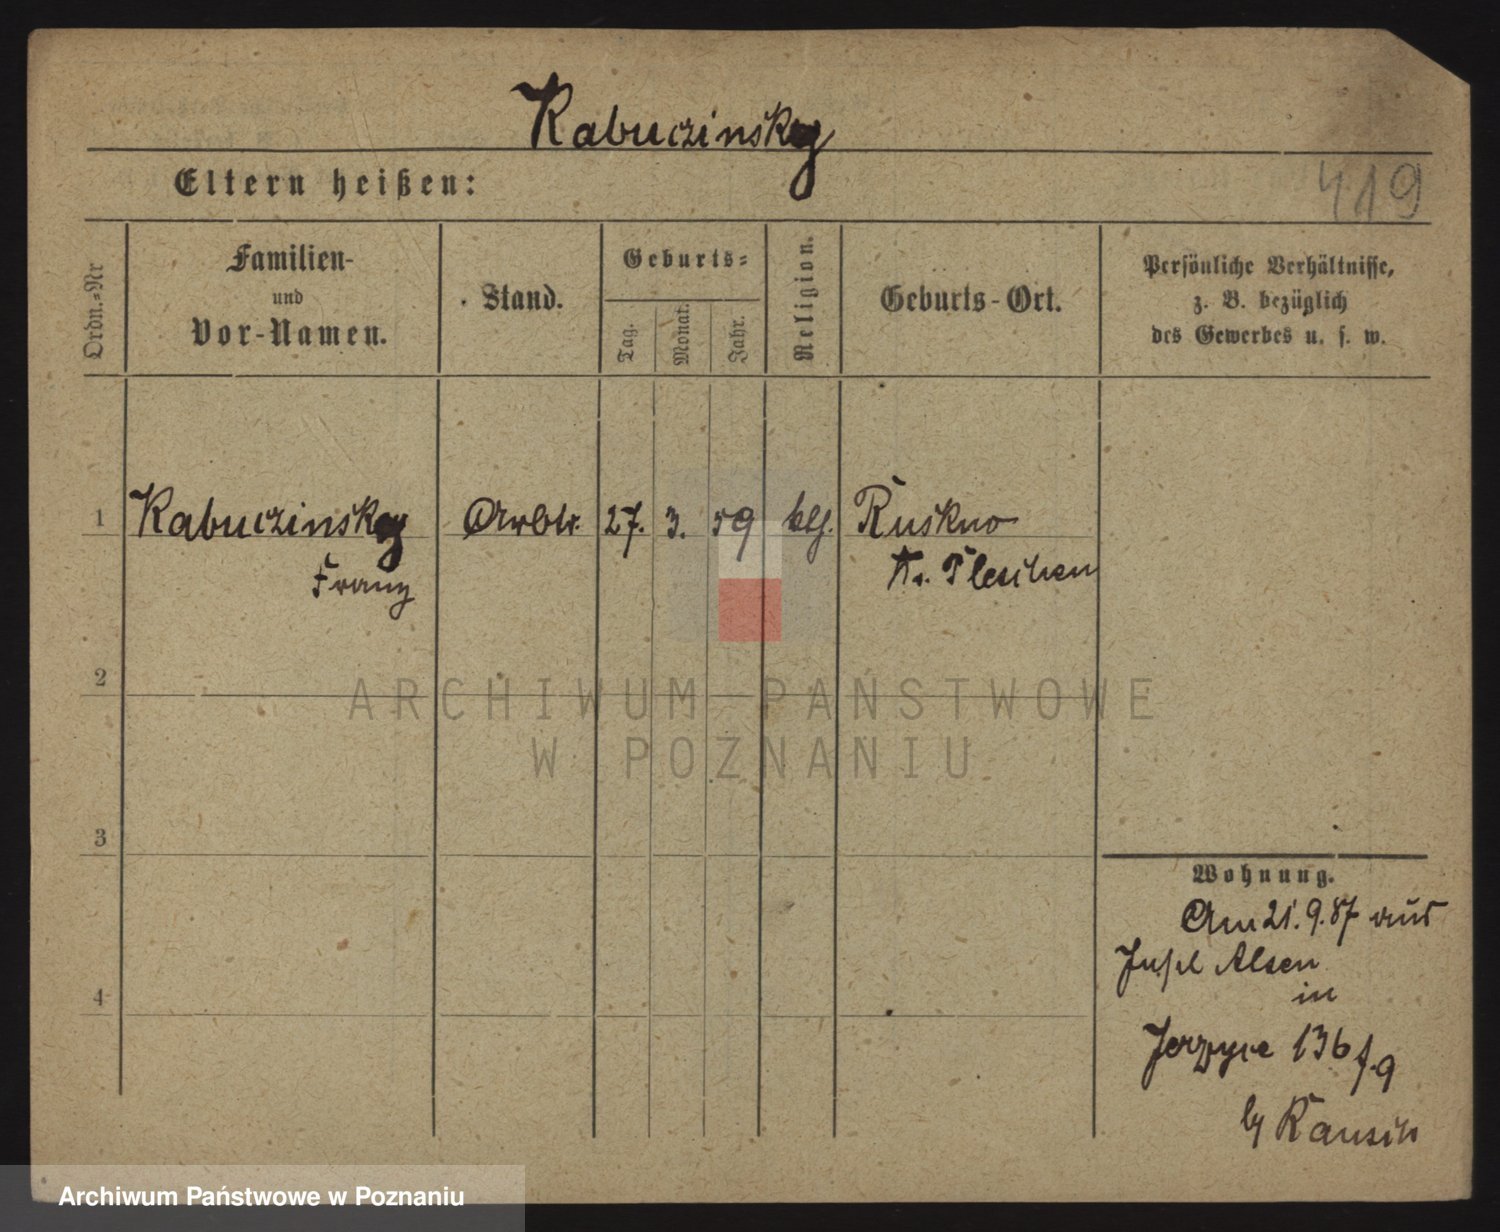 Kabuczinsky
Eltern heißen:
419
Ordn.=Nr
Familien-
und
Vor-Namen.
Stand.
Geburts=
Tag.
Monat.
Jahr.
Religion.
Geburts-Ort.
Persönliche Verhältnisse,
z. B. bezüglich
des Gewerbes u. s. w.
1 Kabuczinsky Arbtr. 27. 3. 59 Ruskno
Franz Kr. Pleschen
2
ARCHIWUM PAŃSTWOWE
W POZNANIU
3
Wohnung.
Am 21.9.87 aus
Insel Alsen
4
in
Jerzyce 136
Archiwum Państwowe w Poznaniu